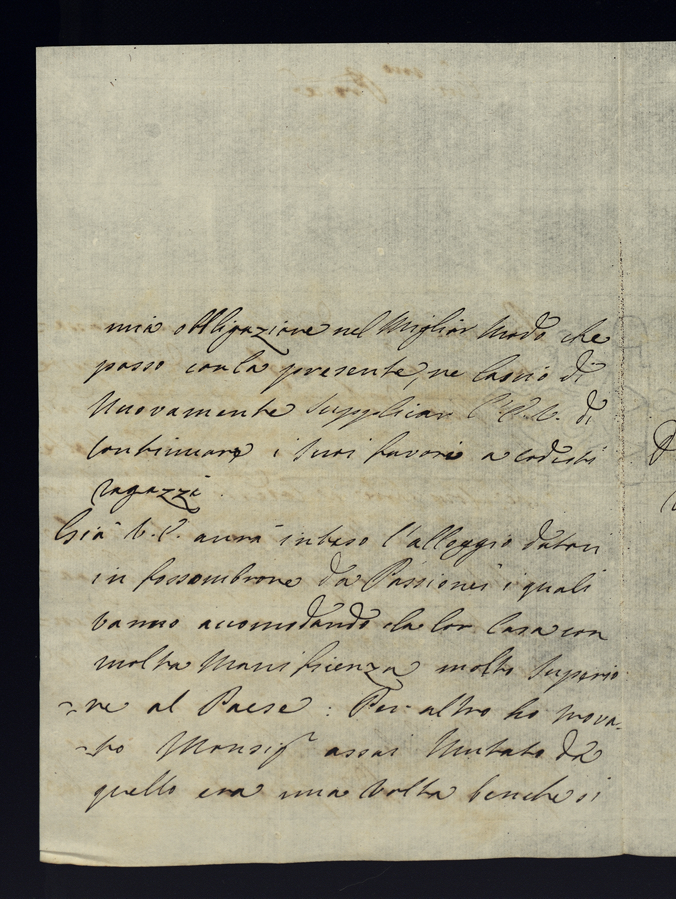 mia obbligazione nel Miglior Modo che
posso con la presente, ne lascio di
Nuovamente Supplicar l'E.V. di
continuare i suoi favori a codesti
ragazzi.
Già V.E. avrà inteso l'alloggio datoci
in fossombrone da Passionei i quali
vanno accomodando la lor Casa con
molta Manificienza molto Superio
=re al Paese: Per altro ho trova-
=to Monsigr assai Mutato da
quello era una Volta benche si